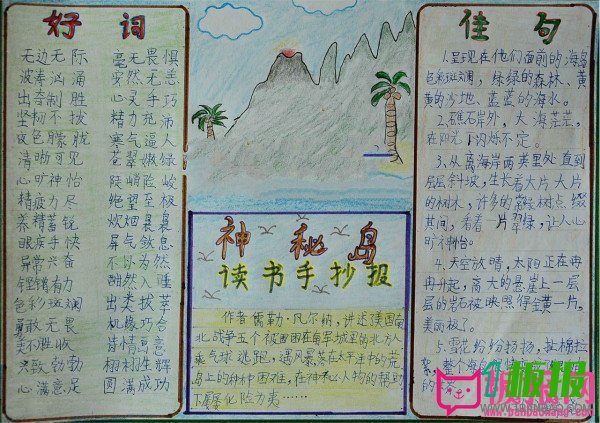 好词
无边无际 毫无畏惧
波涛汹涌 安然无恙
出奇制胜 心灵手巧
坚韧不拔 精力充沛
夜色朦胧 寒气逼人
清晰可见 苍翠嫩绿
心旷神怡 陡峭险峻
精疲力尽 绝望至极
养精蓄锐 炊烟袅袅
眼疾手快 屏气敛息
异常兴奋 不以为然
铿锵有力 酣然入睡
色彩斑斓 出类拔萃
勇敢无畏 机缘巧合
美不胜收
兴致勃勃 栩栩生辉
心满意足 圆满成功
神秘岛
读书手抄报
作者儒勒·凡尔纳，讲述美国南
北战争五个被困在南军城里的北方人
乘气球逃跑，遇风暴落在太平洋中的荒
岛上的种种困难，在神秘人物的帮助
下屡屡化险为夷……
佳句
1.呈现在他们面前的海岛
色彩斑斓，绿绿的森林、黄
黄的沙地、蓝蓝的海水。
2.礁石岸外，大海茫茫，
在阳光下闪烁不定。
3.从离海岸两英里处直到
层层斜坡，生长着大片大片
的树木，许多的 树点缀
其间，看着一片翠绿，让人心
旷神怡。
4.天空放晴，太阳正在冉
冉升起，高大的悬崖上一层
层的岩石被映照得金黄一片，
美丽极了。
5.雪花纷纷扬扬，扯棉拉
絮，整个海